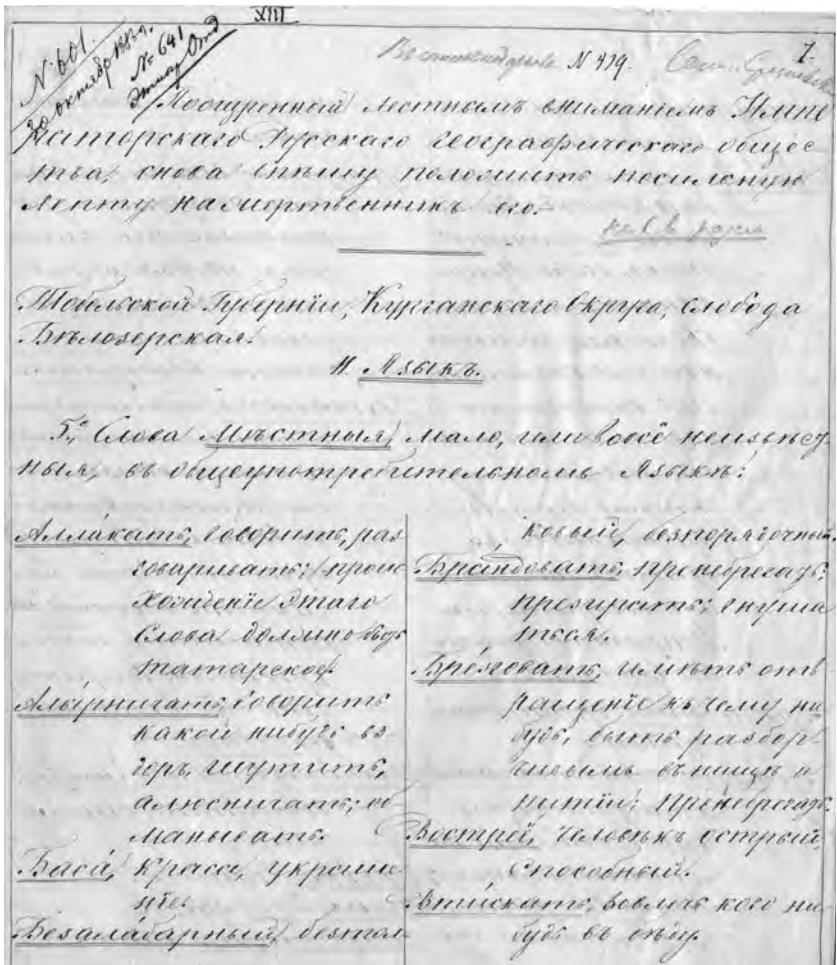 XIII
1.
N. 601.
20 октября 1850.
№ 641
Этногр Отд
N 419.
Поощренный лестнымъ вниманіемъ Импе
раторскаго Русскаго географическаго общес
тва, снова спѣшу положить посильную
лепту на жертвенникъ его.
Тобольской Губерніи, Курганскаго Округа, слобода
Бѣлозерская.
II. Языкъ.
5., Слова Мѣстныя, мало, или вовсё неизвѣст
ныя, въ общеупотребительномъ Языкѣ:
Алла́кать, говорить, раз
говаривать; проис
хожденіе этаго
слова должно быть
татарское.
Алы́рничать, говорить
какой нибудь вз
доръ, шутить,
алюсничать; об
манывать.
Баса́, краса, украше
ніе.
Безала́барный, безтол
ковый, безпорядочный.
Бра́ндовать, пренебрегать;
презирать; гнуша
ться.
Бре́зговать, имѣть отв
ращеніе къ чему ни
будь, быть разбор
чивымъ въ пищѣ и
питіи; пренебрегать.
Вострей, человѣкъ острый,
способный.
Вти́скать, вовлечь кого ни
будь въ бѣду.